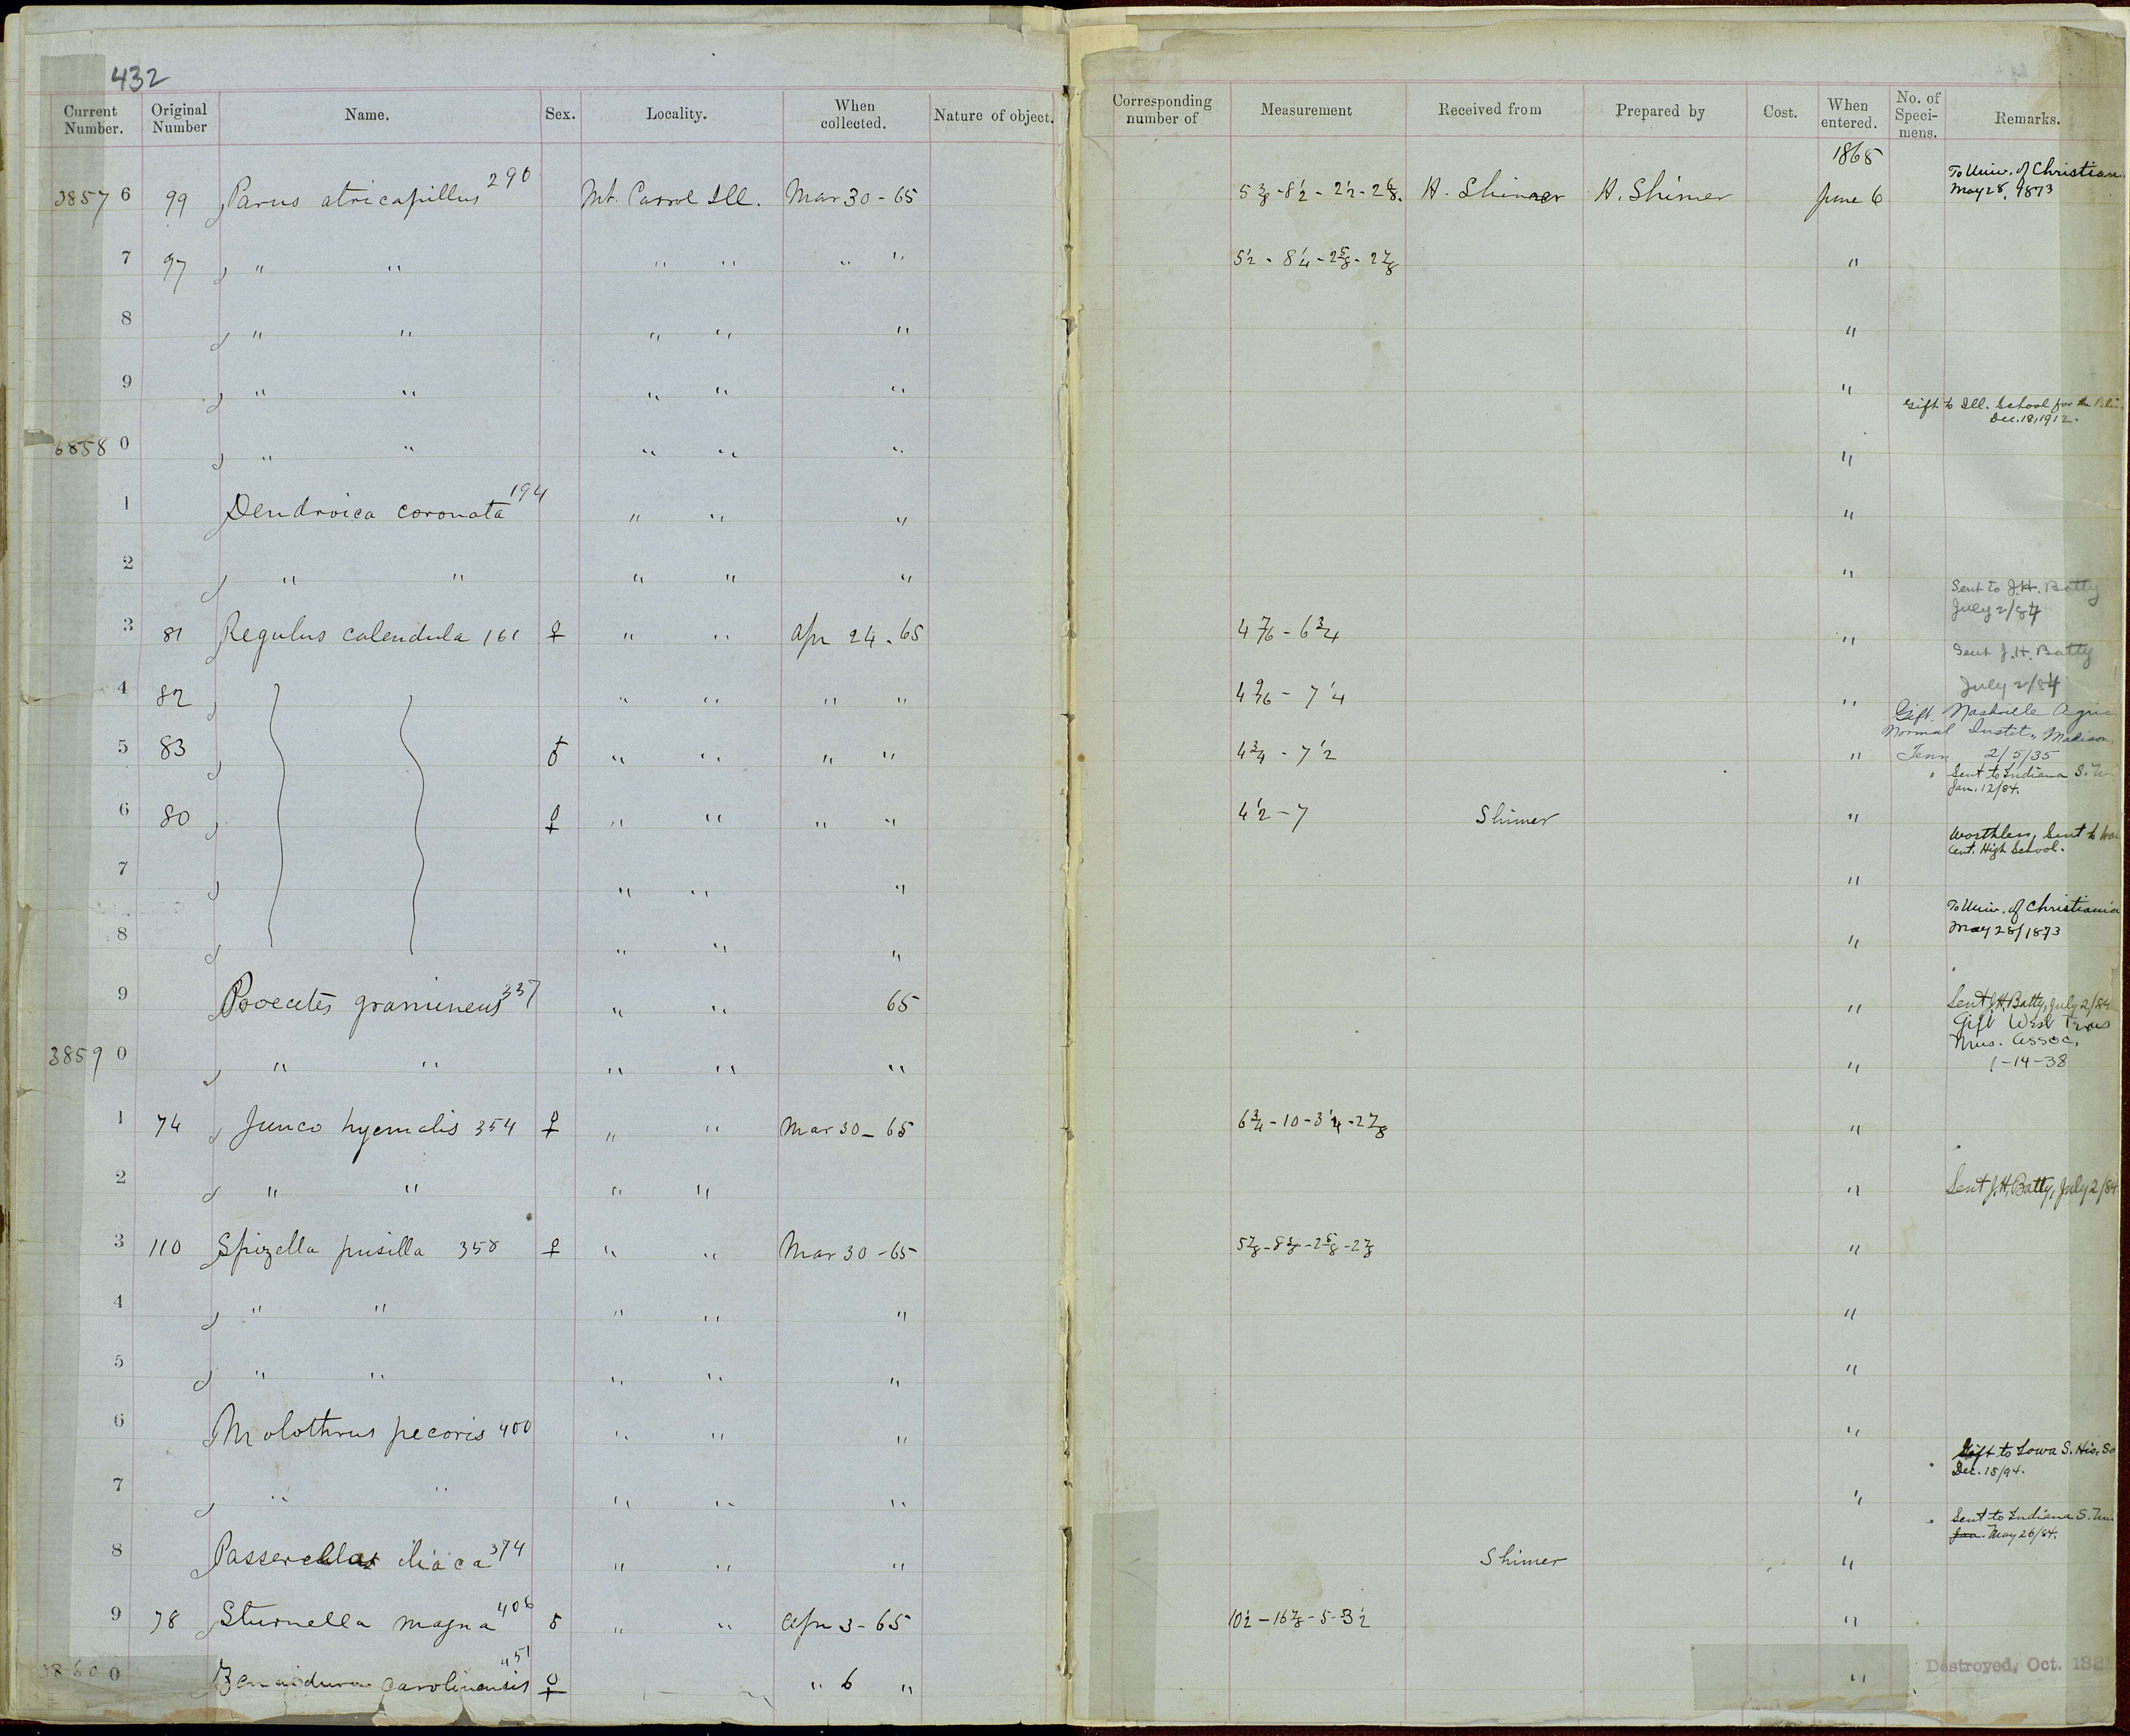 432
Current Number. Original Number Name. Sex. Locality. When collected. Nature of object. Corresponding number of Measurement Received from Prepared by Cost. When entered. No. of Speci-mens. Remarks.
1865
38576 99 Parus atricapillus 290 Mt. Carrol Ill. Mar 30 - 65 5 3/8 - 8 1/2 - 2 1/2 - 2 6/8. H. Shimer H. Shimer June 6 To Univ. of Christian
May 28, 1873
7 97 " " " " " " 5 1/2 - 8 1/4 - 2 5/8 - 2 7/8 "
8 " " " " " "
9 " " " " " "
Gift to Ill. School for the Blin
Dec. 18, 1912.
38580 " " " " " "
1 Dendroica coronata 194 " " " "
2 " " " " " "
Sent to J.H. Batty
July 2/84
3 81 Regulus calendula 161 ♀ " " Apr 24 - 65 4 7/16 - 6 3/4 "
Sent J.H. Batty
July 2/84
4 82 " " " " 4 9/16 - 7 1/4 "
Gift. Nashville Agric
Normal Instit., Madison,
Tenn 2/5/35
5 83 ♂ " " " " 4 3/4 - 7 1/2 "
Sent to Indiana S.
Jan. 12/84.
6 80 ♀ " " " " 4 1/2 - 7 Shimer "
Worthless, Sent to
Cent. High School.
7 " " " "
To Univ. of Christiania
May 28/1873
8 " " " "
9 Pooecetes gramineus 337 " " 65 " Sent J.H. Batty, July 2/84
Gift West Texas
Mus. Assoc.
1-14-38
38590 " " " " " "
1 74 Junco hyemalis 354 ♀ " " Mar 30 - 65 6 3/4 - 10 - 3 1/4 - 2 7/8 "
2 " " " " " Sent J.H. Batty, July 2/84
3 110 Spizella pusilla 358 ♀ " " Mar 30 - 65 5 7/8 - 8 - 2 5/8 - 2 7/8 "
4 " " " " " "
5 " " " " " "
6 Molothrus pecoris 400 " " " "
Gift to Iowa S. His. So
Dec. 15/94.
7 " " " " " "
Sent to Indiana S. Uni
Jan. May 26/84.
8 Passerella iliaca 374 " " " Shimer "
9 78 Sturnella magna 406 ♂ " " Apr 3 - 65 10 1/2 - 16 7/8 - 5 - 3 1/2 "
38600 Zenaidura carolinensis 451 ♀ " 6 " " Destroyed, Oct.